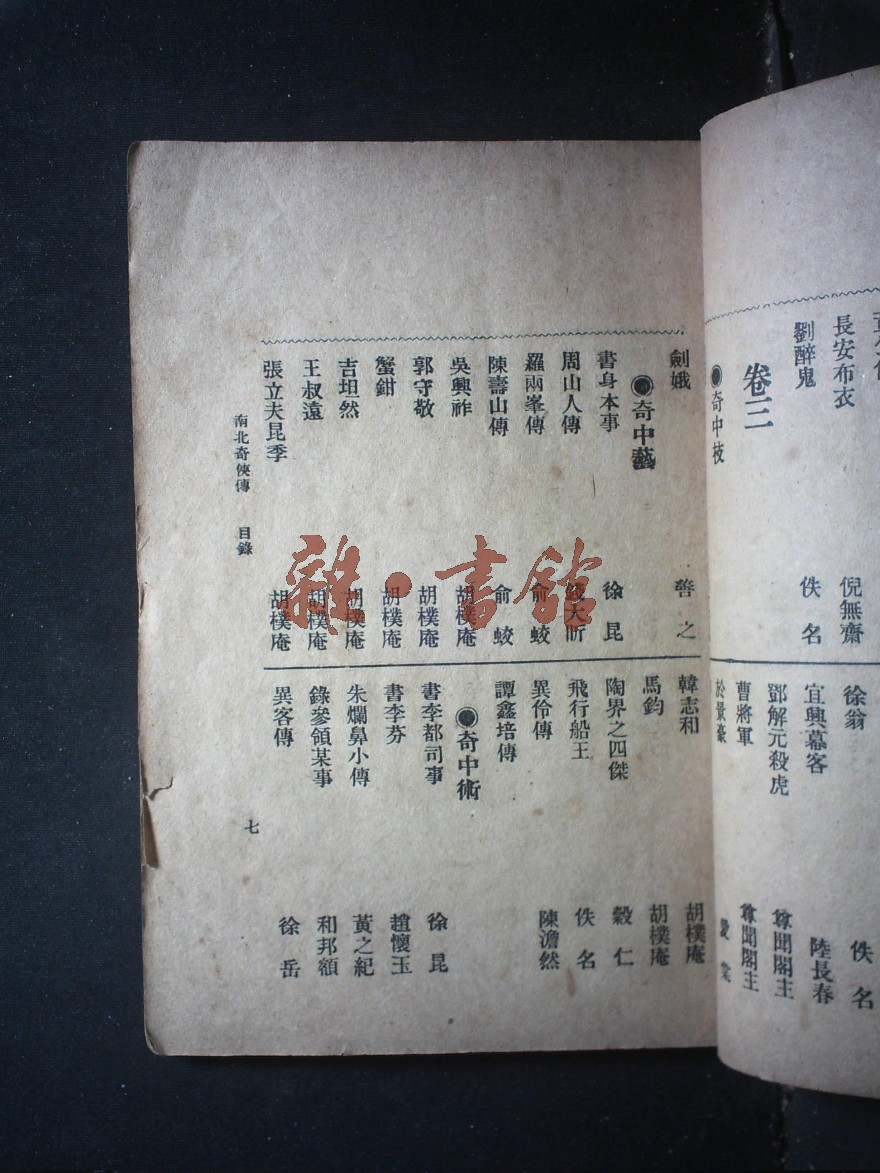 長安布衣 倪無齋
劉醉鬼 佚名
卷三
●奇中枝
徐翁 佚名
宜興幕客 陸長春
鄧解元殺虎 尊聞閣主
曹將軍 尊聞閣主
於景豪
劍娥 善之
◉奇中藝
書身本事 徐昆
周山人傳 錢大昕
羅兩峯傳 俞蛟
陳壽山傳 俞蛟
吳興祚 胡樸庵
郭守敬 胡樸庵
蟹鉗 胡樸庵
吉坦然 胡樸庵
王叔遠 胡樸庵
張立夫昆季 胡樸庵
韓志和 胡樸庵
馬鈞 胡樸庵
陶界之四傑 穀仁
飛行船王 佚名
異伶傳 陳澹然
譚鑫培傳
◉奇中術
書李都司事 徐昆
書李芬 趙懷玉
朱爛鼻小傳 黃之紀
錄參領某事 和邦額
異客傳 徐岳
南北奇俠傳 目錄 七
雜·書館